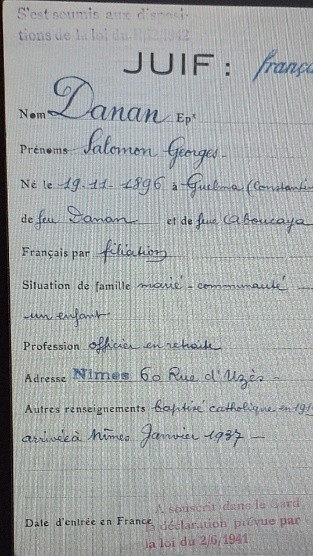 S'est soumis aux disposi-
tions de la loi du 1942
JUIF : frança
Nom Danan Epx
Prénoms Salomon Georges
Né le 19.11.1896 à Guelma (Constantin
de feu Danan et de feue Caboucaya
Français par filiation
Situation de famille marié - communauté
un enfant
Profession officier en retraite
Adresse Nimes 60 Rue d'Uzès
Autres renseignements baptisé catholique en 191
arrivée à Nîmes Janvier 1937 —
A souscrit dans le Gard
Date d'entrée en France la déclaration prévue par
la loi du 2/6/1941